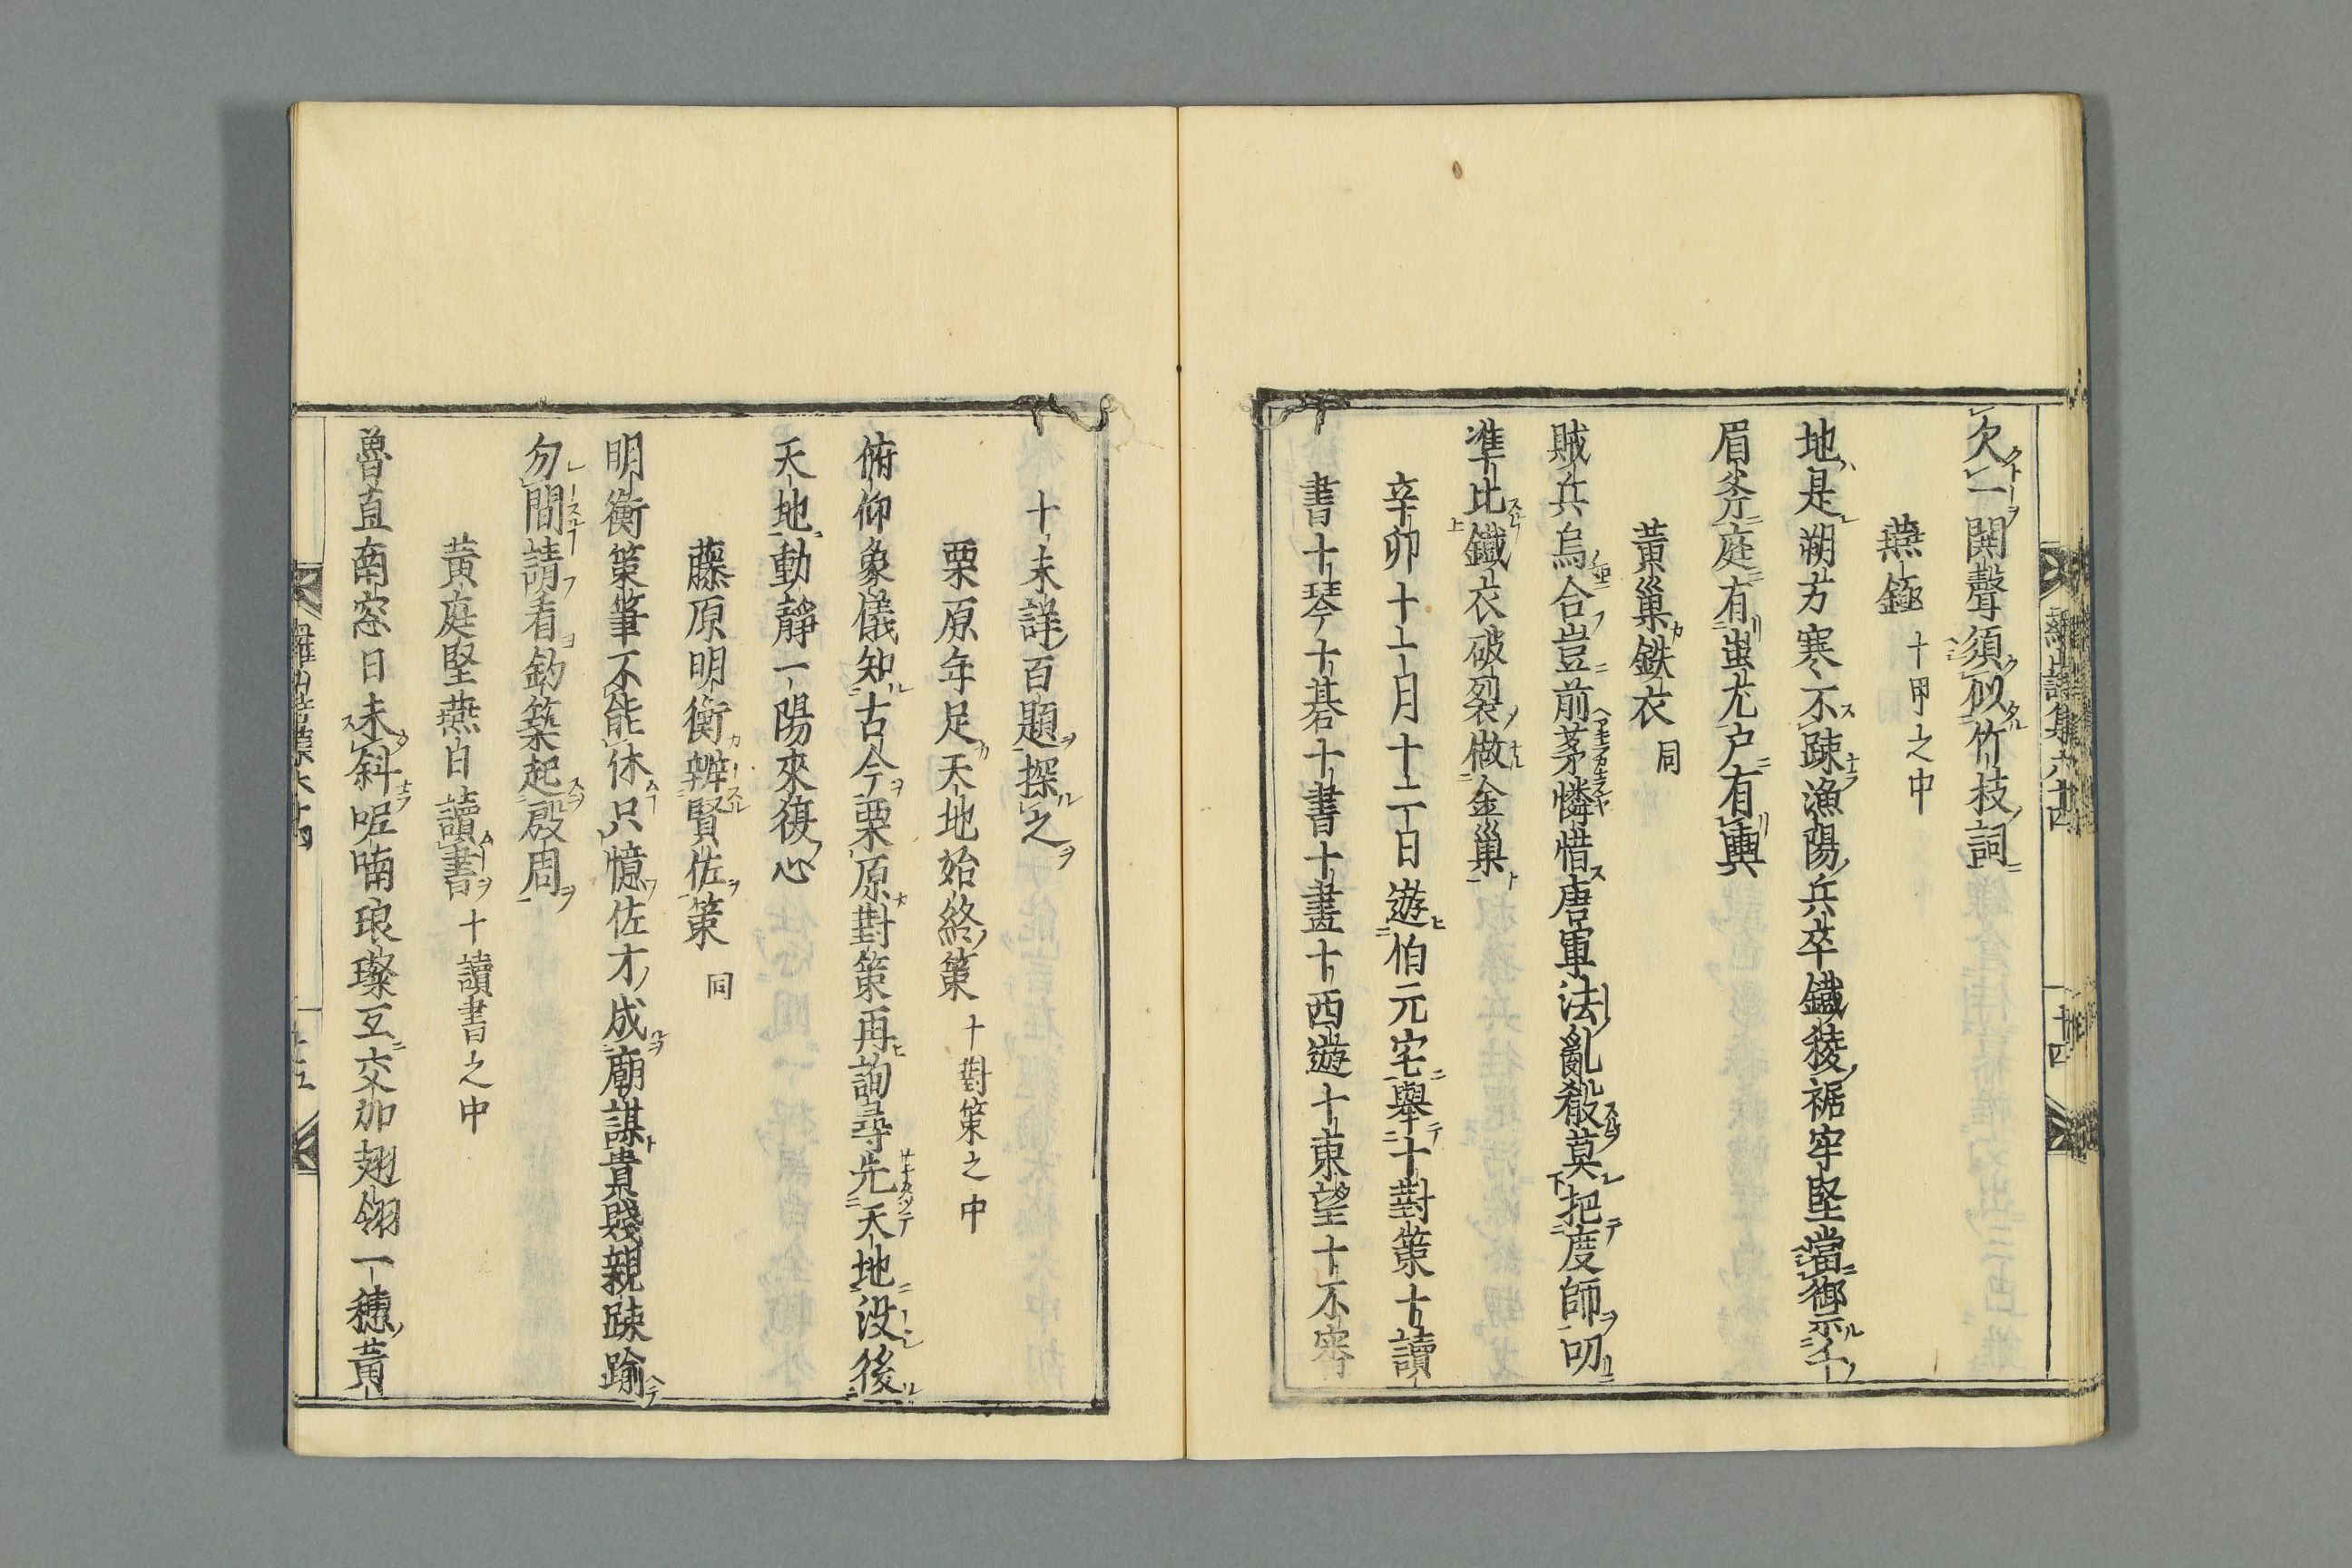 欠一開聲須似竹枝詞
燕鉦 十甲之中
地是朔方寒不疎漁陽兵卒鐵稜裾牢堅當御示千
眉斧庭有蚩尤户有輿
黄巢鉄衣 同
賊兵烏合豈前茅憐惜唐軍法亂殺莫把度師叨
準比鐵衣破裂做金巢
辛卯十一月十二日遊伯元宅舉十對策十讀
書十琴十碁十書十畫十西遊十東望十不審
十未詳百題探之
栗原年足天地始終策 十對策之中
俯仰象儀知古今栗原對策再詢尋先天地没後
天地動靜一陽來復心
藤原明衡辨賢佐策 同
明衡策筆不能休只憶佐才成廟謀貴賤親踈踰
勿間請看釣築起殷周
黄庭堅燕白讀書 十讀書之中
魯直南窓日未斜呢喃琅璨互交加翅翎一穗黄